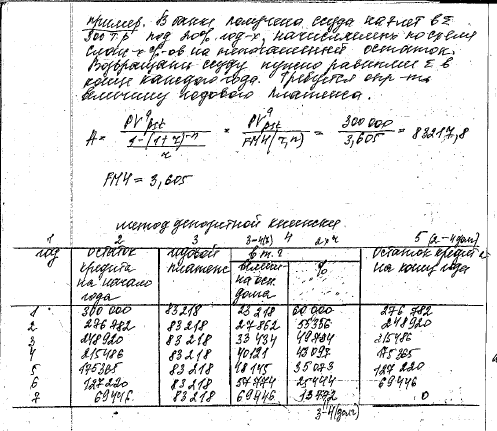 пример. В банке получена ссуда на 7 лет в Σ
300 т.р под 20% год-х, начисляемых по схеме
сложн-х %-ов на непогашенный остаток.
Возвращать ссуду нужно равными Σ в
конце каждого года. Требуется опр-ть
величину годового платежа.
A = PVᵃpst / (1-(1+r)⁻ⁿ / r) = PVᵃpst / FM4(r,n) = 300 000 / 3,605 = 83217,8
FM4 = 3,605
метод депозитной книжки
1 2 3 3-4(%) 4 2×r 5 (2-4долг)
год остаток годовой в т.ч остаток кредита
кредита платеж выплата % на конец года
на начало на осн.
года долга
1 300 000 83218 23 218 60 000 276 782
2 276 782 83218 27 862 55356 248920
3 248920 83218 33 434 49784 215486
4 215486 83218 40121 43097 175365
5 175365 83218 48145 35073 127 220
6 127220 83218 57774 25444 69446
7 69446 83218 69446 13772 0
3-4(долг)